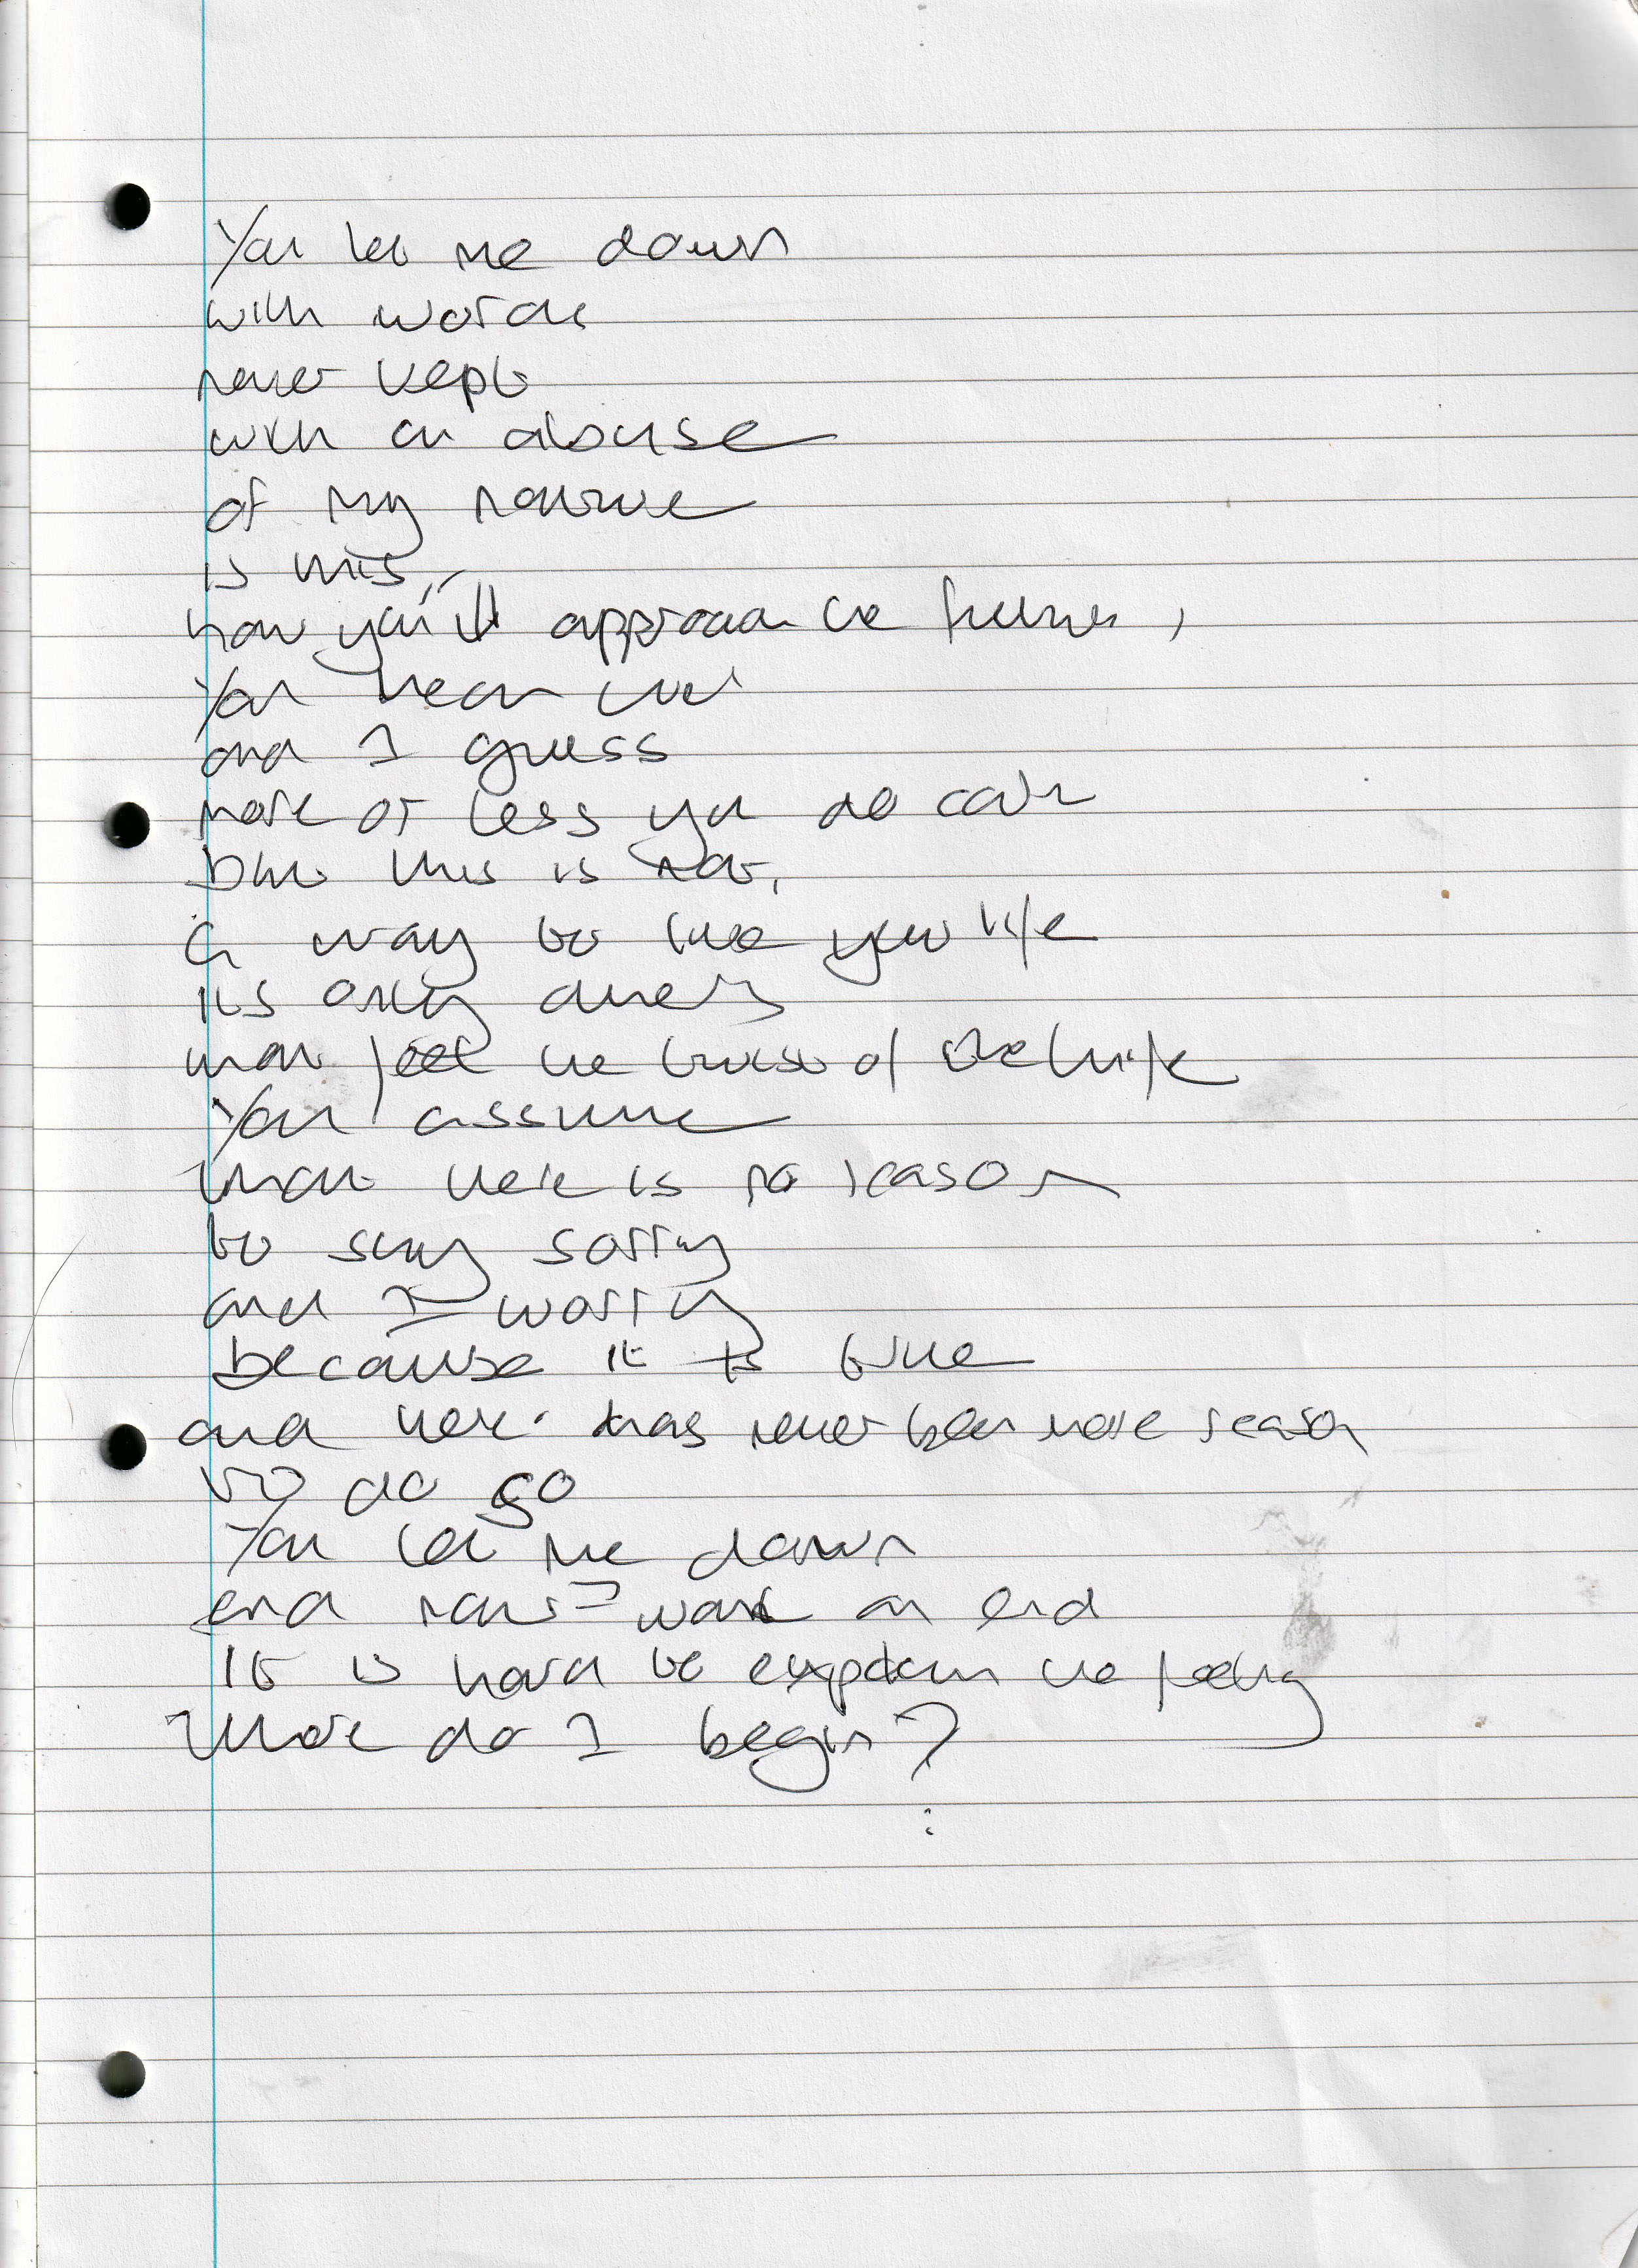 You let me down
with words
never kept
with an abuse
of my nature
is this,
how you'll approach the future,
You mean well
and I guess
more or less you do care
but this is not,
a way to live your life
its only others
that feel the bruise of the knife
You assume
that there is no reason
to say sorry
and I worry
because it is true
and there has never been more reason
to do so
You let me down
and now I want an end
It is hard to explain the feeling
Where do I begin?